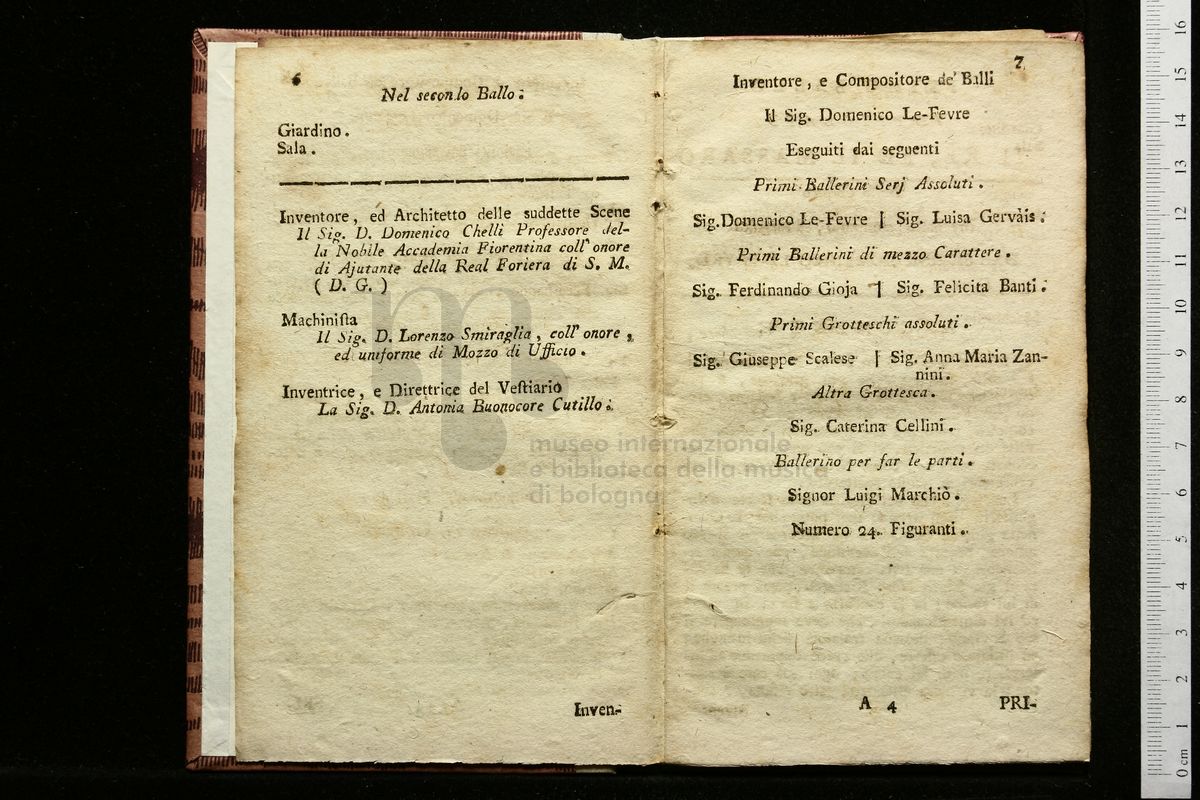 6
Nel secondo Ballo.
Giardino.
Sala.
Inventore, ed Architetto delle suddette Scene
Il Sig. D. Domenico Chelli Professore del-
la Nobile Accademia Fiorentina coll'onore
di Ajutante della Real Foriera di S. M.
( D. G. )
Machiniſta
Il Sig. D. Lorenzo Smiraglia, coll'onore,
ed uniforme di Mozzo di Ufficio.
Inventrice, e Direttrice del Veſtiario
La Sig. D. Antonia Buonocore Cutillo.
Inven-
7
Inventore, e Compositore de' Balli
Il Sig. Domenico Le-Fevre
Eseguiti dai seguenti
Primi Ballerini Serj Assoluti.
Sig. Domenico Le-Fevre | Sig. Luisa Gervais.
Primi Ballerini di mezzo Carattere.
Sig. Ferdinando Gioja | Sig. Felicita Banti.
Primi Grotteschi assoluti.
Sig. Giuseppe Scalese | Sig. Anna Maria Zan-
nini.
Altra Grottesca.
Sig. Caterina Cellini.
Ballerino per far le parti.
Signor Luigi Marchiò.
Numero 24. Figuranti.
A 4
PRI-
museo internazionale
e biblioteca della musica
di bologna
0 cm 1 2 3 4 5 6 7 8 9 10 11 12 13 14 15 16